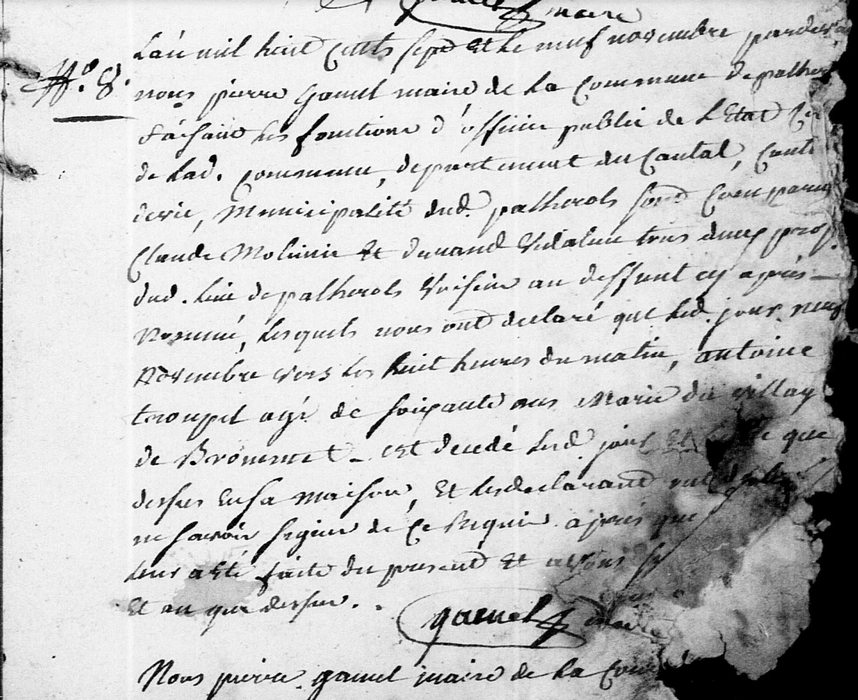 maire
N.º 8.
L'an mil huit cents sept et le neuf novembre pardev
nous pierre gamel maire de la commune de palher
faisant les fonctions d'officier public de l'Etat
de lad. commune, departement du Cantal, Cant
de vic, Municipalité dud. palherols sont comparus
Claude Molinier et durand tous deux prop.
dud. lieu de palherols voisins au deffunt cy après
Nommé, lesquels nous ont declaré que led. jour neuf
Novembre vers les huit heures du matin, antoine
troupel agé de soixante ans Marié du villag
de Brommet - est decedé led. jour et que
dessus en sa maison, Et les declarants ont
ne savoir signer de ce Requis après que
leur a eté faite du present et avons
Et an que dessus.
gamel maire
Nous pierre gamel maire de la Com